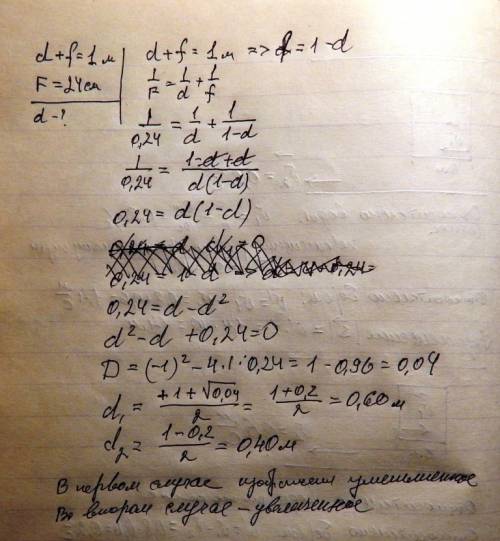 d+f=1м
F=24см
d-?
d+f=1м => f=1-d
1/F = 1/d + 1/f
1/0,24 = 1/d + 1/(1-d)
1/0,24 = (1-d+d)/(d(1-d))
0,24 = d(1-d)
0,24 = d-d²
d²-d+0,24=0
D = (-1)²-4·1·0,24 = 1-0,96 = 0,04
d₁ = (+1+√0,04)/2 = (1+0,2)/2 = 0,60м
d₂ = (1-0,2)/2 = 0,40м
В первом случае изображения уменьшенное
Во втором случае - увеличенное